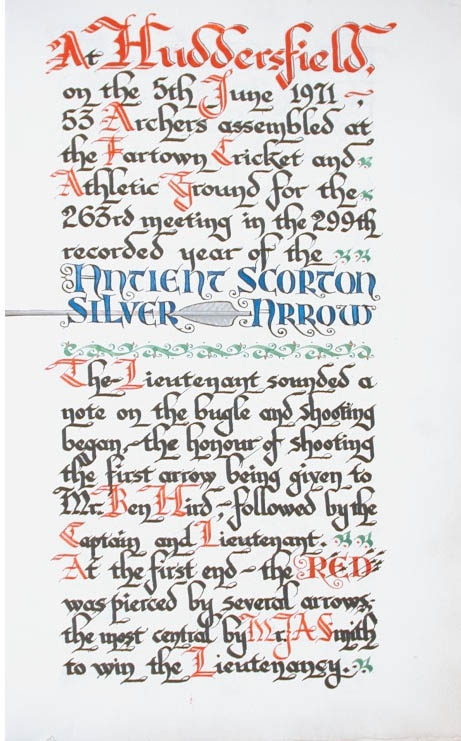 At Huddersfield,
on the 5th June 1971 ~,
53 Archers assembled at
the Fartown Cricket and
Athletic Ground for the
263rd meeting in the 299th
recorded year of the
ANTIENT SCORTON
SILVER ARROW
The Lieutenant sounded a
note on the bugle and shooting
began,~the honour of shooting
the first arrow being given to
Mr. Ben Hird,~followed by the
Captain and Lieutenant.
At the first end~the RED
was pierced by several arrows,
the most central by Mr. J A Smith
to win the Lieutenancy.